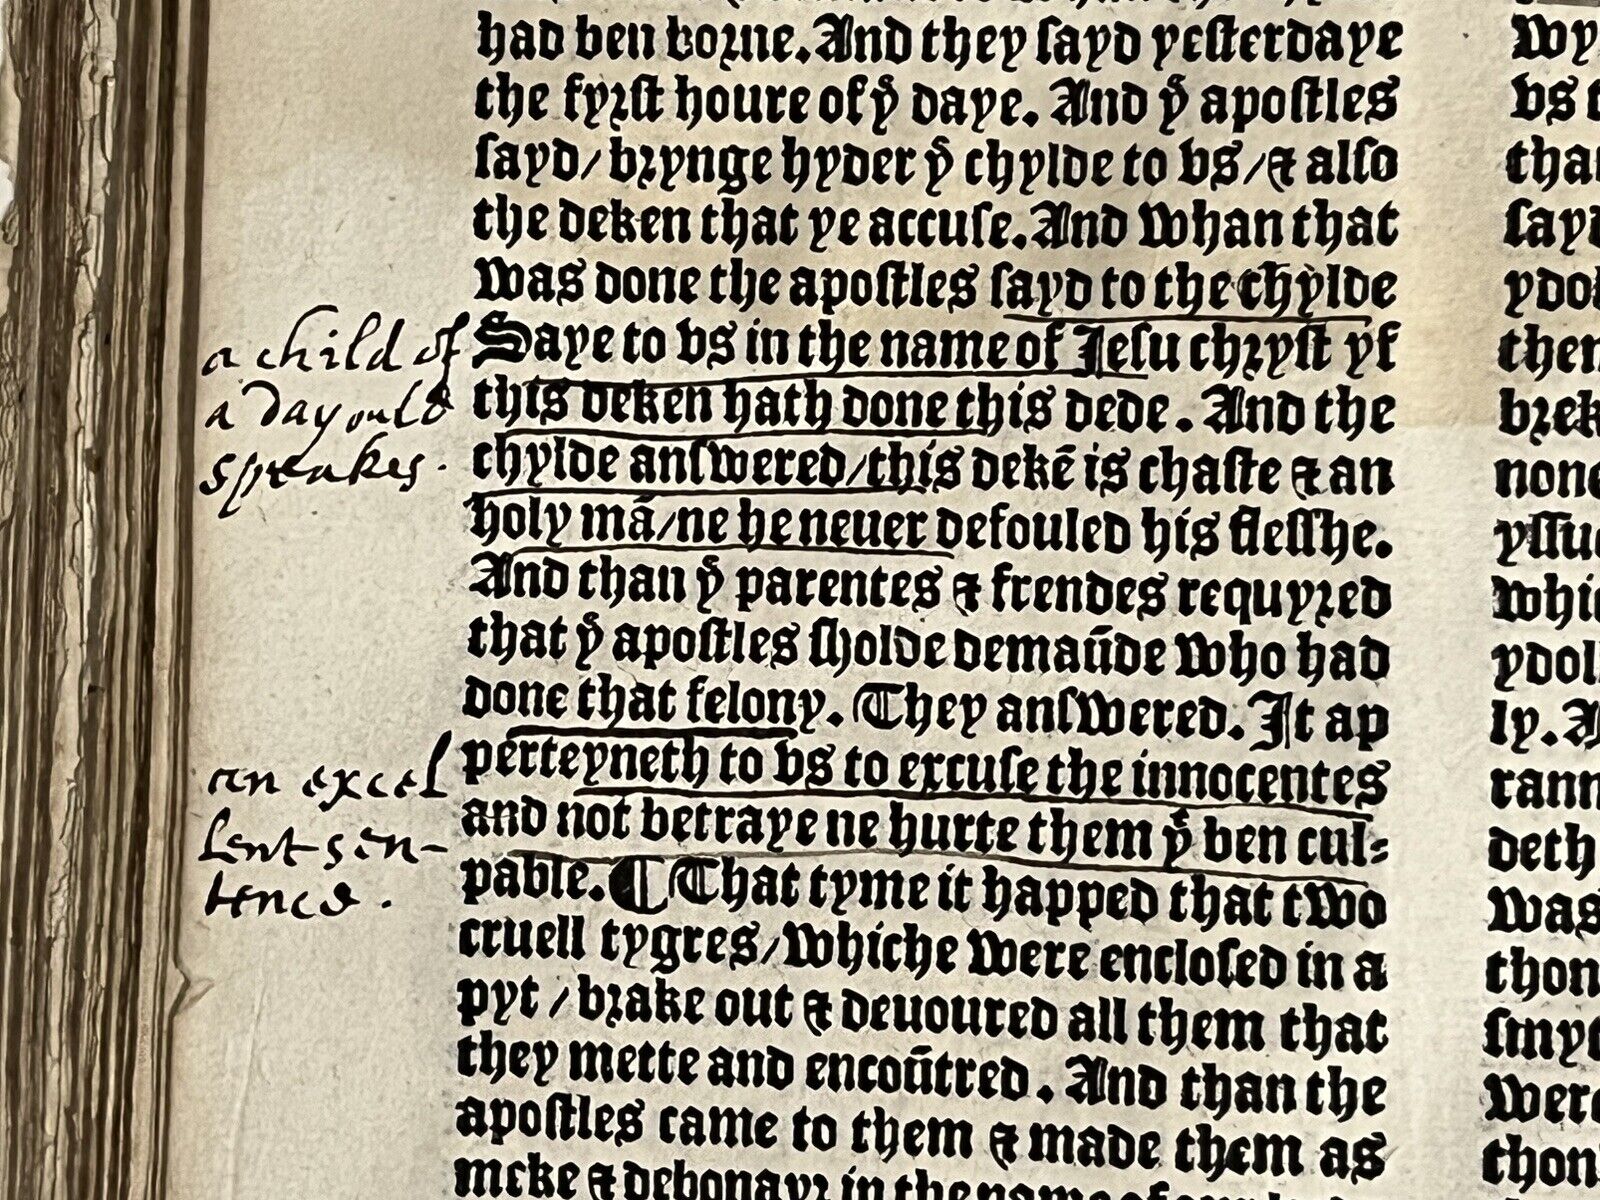 had ben borne. And they sayd yesterdaye
the fyrst houre of yͤ daye. And yͤ apostles
sayd/ brynge hyder yͤ chylde to vs/ & also
the deken that ye accuse. And whan that
was done the apostles sayd to the chylde
Saye to vs in the name of Jesu chryst yf
this deken hath done this dede. And the
chylde answered/ this dekē is chaste & an
holy mā/ ne he neuer defouled his flesshe.
And than yͤ parentes & frendes requyred
that yͤ apostles sholde demaūde who had
done that felony. They answered. It ap
perteyneth to vs to excuse the innocentes
and not betraye ne hurte them yͤ ben cul=
pable. ¶ That tyme it happed that two
cruell tygres/ whiche were enclosed in a
pyt/ brake out & deuoured all them that
they mette and encoūtred. And than the
apostles came to them & made them as
meke & debonayr in the name of
a child of
a day ould
speakes.
an excel
lent sen-
tence.
wy
vs
tha
sayd
ydol
then
brek
none
yssu
whi
ydol
ly. A
rann
deth
was
thon
smyt
were
thon